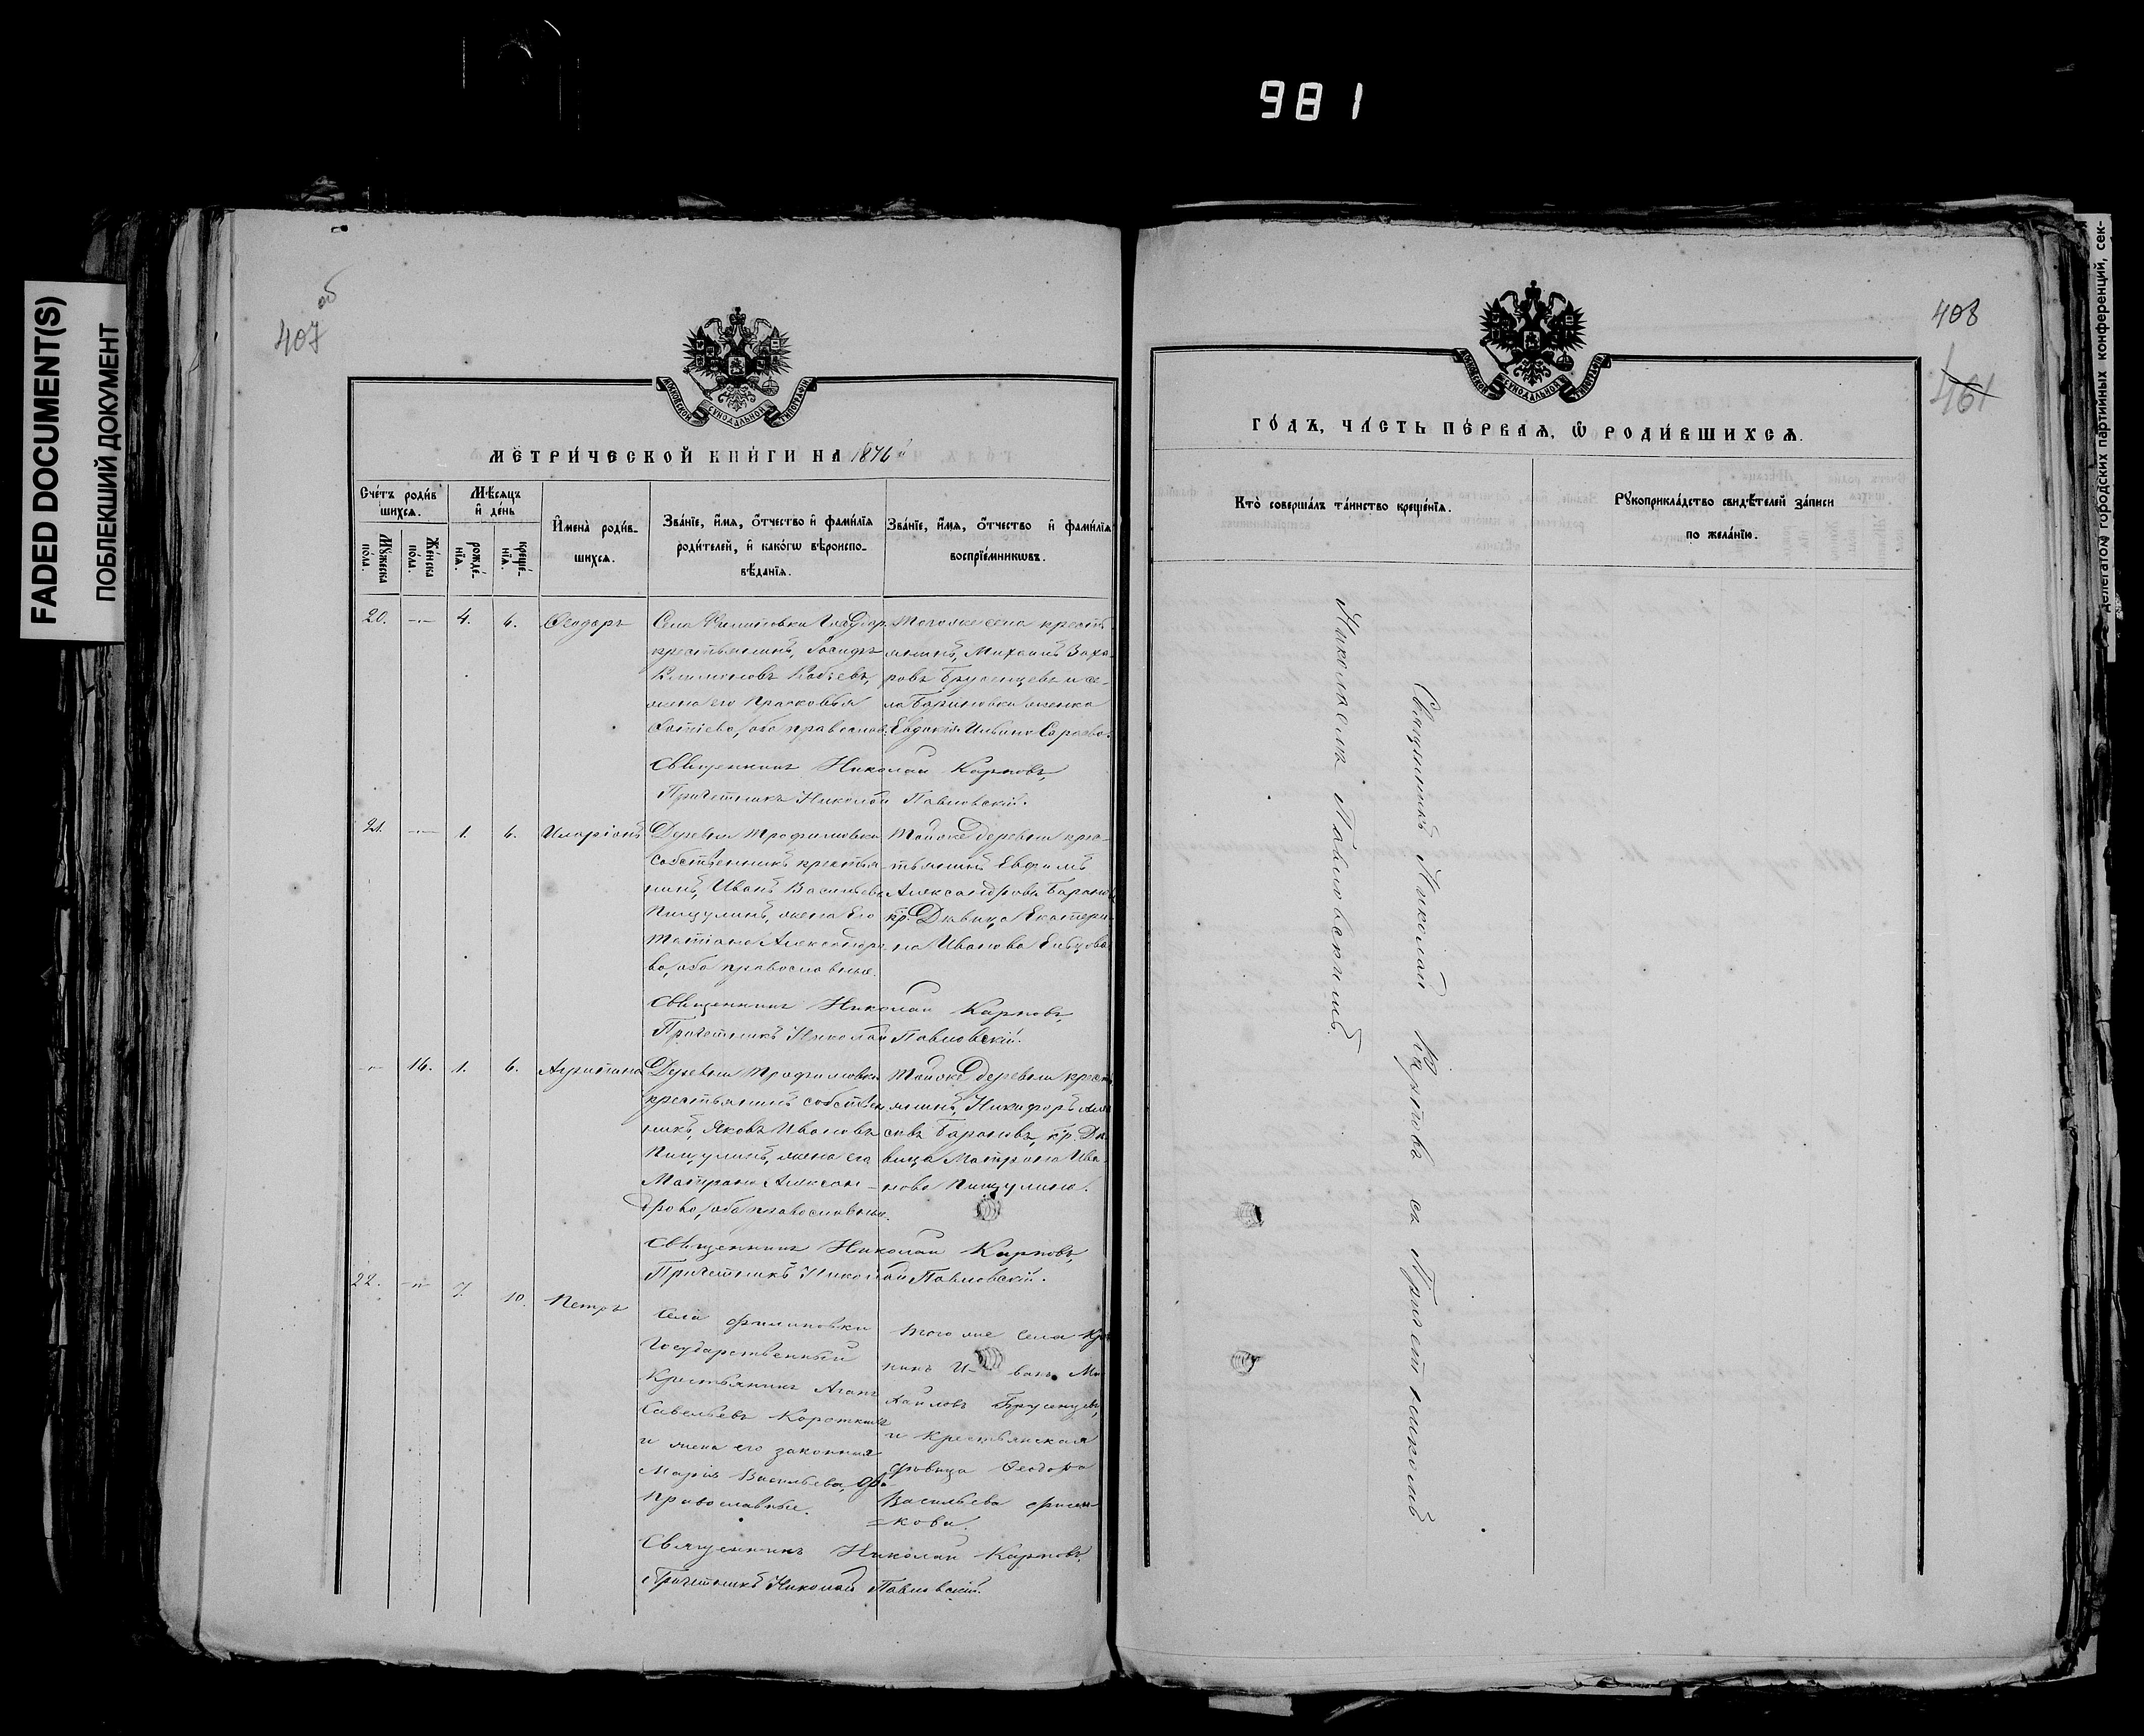 981
FADED DOCUMENT(S)
ПОБЛЕКШИЙ ДОКУМЕНТ
об
407
МОСКОВСКОЙ СѴНОДАЛЬНОЙ ТИПОГРАФІИ
МЕТРИ́ЧЕСКОЙ КНИ́ГИ НА 1876й
Сче́тъ роди́в
шихсѧ.
Мѣ́сѧцъ
и҆ де́нь
Мꙋ́жеска
по́ла.
Же́нска
по́ла.
рожде́-
нїѧ.
креще́-
нїѧ.
И҆мена̀ роди́в-
шихсѧ.
Зва́нїе, и҆́мѧ, ѻ҆́тчество и҆ фами́лїѧ
роди́телей, и҆ како́гѡ вѣроиспо-
вѣ́данїѧ.
Зва́нїе, и҆́мѧ, ѻ҆́тчество и҆ фами́лїѧ
воспрїе́мникѡвъ.
20. 4. 6. Ѳеодоръ
крестьянинъ,
жена его Прасковья
Фотіева, оба православ.
Тогоже села кресть
янинъ, Михаилъ Заха-
ровъ Брусенцевъ и се-
ла женка
Евдокія Ильина
Священникъ Николай Карповъ,
Причетникъ Николай Павловскій.
21. 1. 6. Иларіонъ
Деревни Трофимовки
собственникъ крестья-
нинъ, Иванъ Васильевъ
Пищулинъ, жена его
Татіана Александро-
ва, оба православные.
Тойже деревни крес-
тьянинъ Евфимъ
Александровъ Барановъ
кр. Дѣвица Екатери-
на Иванова
Священникъ Николай Карповъ,
Причетникъ Николай Павловскій.
16. 1. 6. Агрипина
Деревни Трофимовки
крестьянинъ собствен
никъ, Яковъ Ивановъ
Пищулинъ, жена его
Матрона Алексан-
дрова, оба православные.
Тойже деревни кресть
янинъ, Никифоръ
Барановъ, кр. Дѣ
вица Матрона Ива-
нова Пищулина.
Священникъ Николай Карповъ,
Причетникъ Николай Павловскій.
22. 7. 10. Петръ
Села Филиповки
Государственный
Крестьянинъ Агапъ
Савельевъ
и жена его законная
Марія Васильева, оба
Православные.
Того же села кр
нинъ И- ванъ Ми
хайловъ Брусенцевъ,
и Крестьянская
дѣвица Ѳеодора
Васильева
Священникъ Николай Карповъ,
Причетникъ Николай Павловскій.
408
461
МОСКОВСКОЙ СѴНОДАЛЬНОЙ ТИПОГРАФІИ
ГО́ДЪ, ЧА́СТЬ ПЕ́РВАѦ, Ѽ РОДИ́ВШИХСѦ.
Кто̀ соверша́лъ та́инство креще́нїѧ.
Рꙋкоприкла́дство свидѣ́телей за́писи
по жела́нїю.
Священникъ Николай Карповъ съ Причетникомъ
Николаемъ Павловскимъ.
делегатов городских партийных конференций, сек-